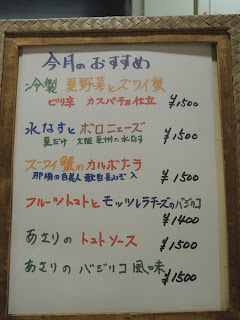 今月のおすすめ
冷製 夏野菜とズワイ蟹
ピリ辛 カスパチョ仕立 ¥1500
水なすとボロニェーズ
夏だけ 大阪 泉州の水なす ¥1500
ズワイ蟹のカルボナーラ
那須の 入 ¥1500
フルーツトマトとモッツレラチーズのバジリコ
¥1400
あさりのトマトソース ¥1500
あさりのバジリコ風味 ¥1500